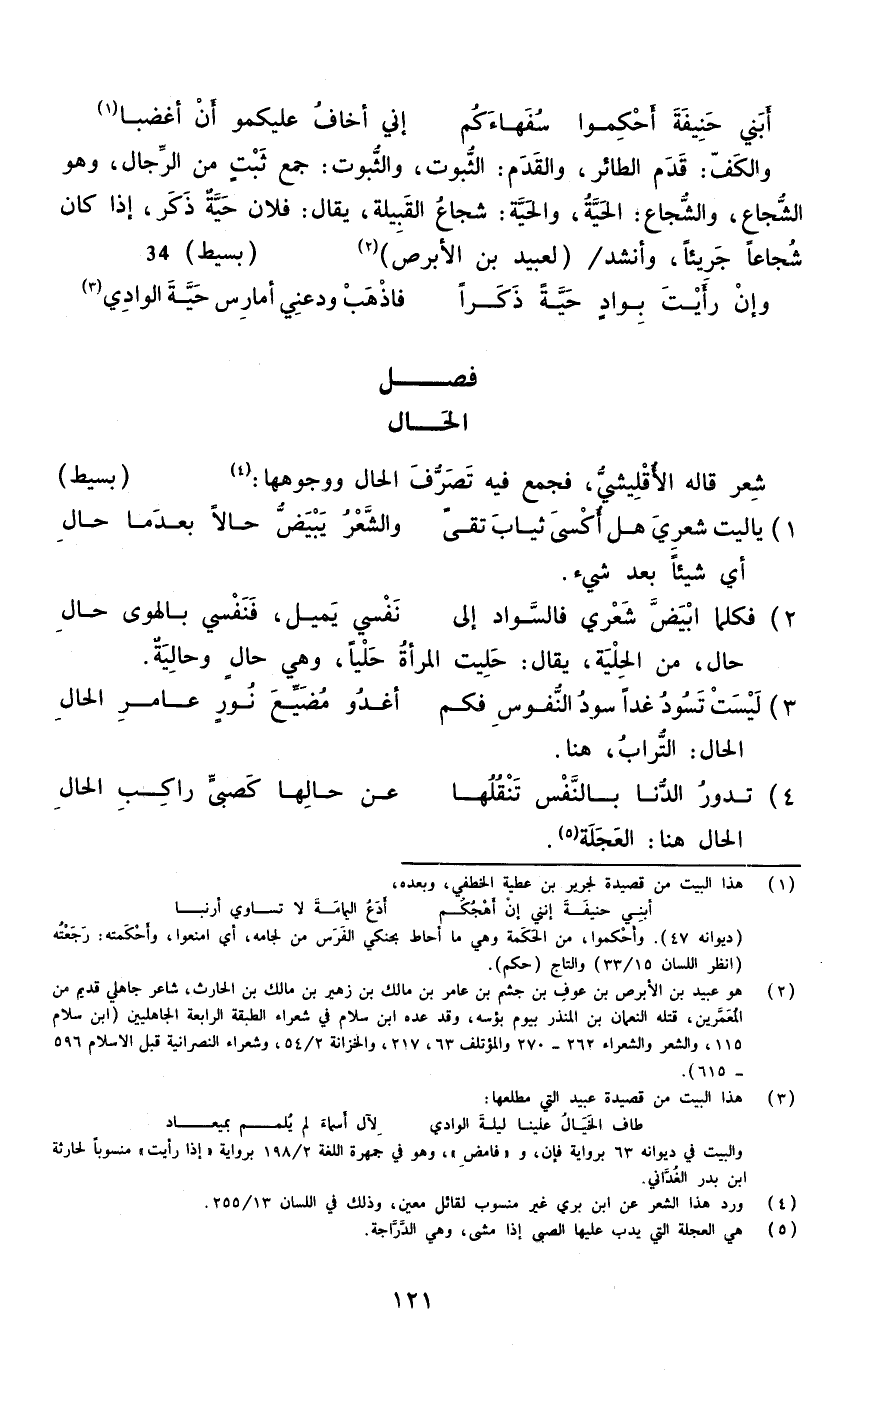 أَبَني حَنِيفَةَ أَحْكِمـوا سُفَهـاءَكُم إني أخافُ عليكمو أَنْ أغضبـا(١)
والكَفّ: قَدَم الطائر، والقَدَم: الثُّبوت، والثُّبوت: جمع ثَبْتٍ من الرِّجال، وهو
الشُّجاع، والشُّجاع: الحَيَّةُ، والحَيَّة: شجاعُ القَبِيلة، يقال: فلان حَيَّةٌ ذَكَر، إذا كان
شُجاعاً جَرِيئاً، وأنشد/ (لعبيد بن الأبرص)(٢) (بسيط) 34
وإنْ رأَيْـتَ بِـوادٍ حَيَّةً ذَكَـــراً فاذْهَبْ ودعنِي أمارِس حَيَّةَ الوادِي(٣)
فصـــــل
الحَـــال
شِعر قاله الأقْلِيشيُّ، فجمع فيه تَصَرُّفَ الحال ووجوهها:(٤) (بسيط)
١) ياليت شعرِيَ هـل أُكْسىَ ثيـابَ تقىً والشَّعْرُ يَبْيَضُّ حـالاً بعـدَمـا حـالِ
أي شيئاً بعد شيء.
٢) فكلما ابْيَضَّ شَعْرِي فالسَّواد إلى نَفْسي يَميـل، فَنَفْسِي بـالهوى حـالِ
حال، من الحِلْيَة، يقال: حَلِيت المرأةُ حَلْياً، وهي حالٍ وحالِيَةٌ.
٣) لَيْسَتْ تَسُودُ غداً سودُ النُّفوسِ فكـم أغـدُو مُضَيِّـعَ نُـورٍ عــامــرِ الحالِ
الحال: التُّرابُ، هنا.
٤) تـدورُ الدُّنـا بـــالنَّفْس تَنْقُلُهـا عـن حـالِهـا كَصَبيٍّ راكِـــبِ الحالِ
الحال هنا: العَجَلَة(٥).
(١) هذا البيت من قصيدة لجرير بن عطية الخطفي، وبعده،
أبنـي حنيفـةَ إنني إنْ أَهْجُكُــم أَدَعُ اليمامَــةَ لا تــساوي أرنبــا
(ديوانه ٤٧). وأحكموا، من الحَكَمة وهي ما أحاط بحنكي الفَرَس من لجامه، أي امنعوا، وأحْكمته: رَجَعْتُه
(انظر اللسان ٣٣/١٥) والتاج (حكم).
(٢) هو عبيد بن الأبرص بن عوف بن جشم بن عامر بن مالك بن زهير بن مالك بن الحارث، شاعر جاهلي قديم من
المُعَمَّرين، قتله النعمان بن المنذر بيوم بؤسه، وقد عده ابن سلام في شعراء الطبقة الرابعة الجاهليين (ابن سلام
١١٥، والشعر والشعراء ٢٦٢ ــ ٢٧٠ والمؤتلف ٦٣، ٢١٧، والخزانة ٥٤/٢، وشعراء النصرانية قبل الاسلام ٥٩٦
ــ ٦١٥).
(٣) هذا البيت من قصيدة عبيد التي مطلعها:
طاف الخَيَـالُ علينـا ليلـةَ الوادي لآل أسماءَ لم يُلمــم بميعـــاد
والبيت في ديوانه ٦٣ برواية فإن، و «فامض»، وهو في جمهرة اللغة ١٩٨/٢ برواية «إذا رأيت» منسوباً لحارثة
ابن بدر الغُدَّاني.
(٤) ورد هذا الشعر عن ابن بري غير منسوب لقائل معين، وذلك في اللسان ٢٥٥/١٣.
(٥) هي العجلة التي يدب عليها الصبي إذا مشى، وهي الدَّرَّاجة.
١٢١